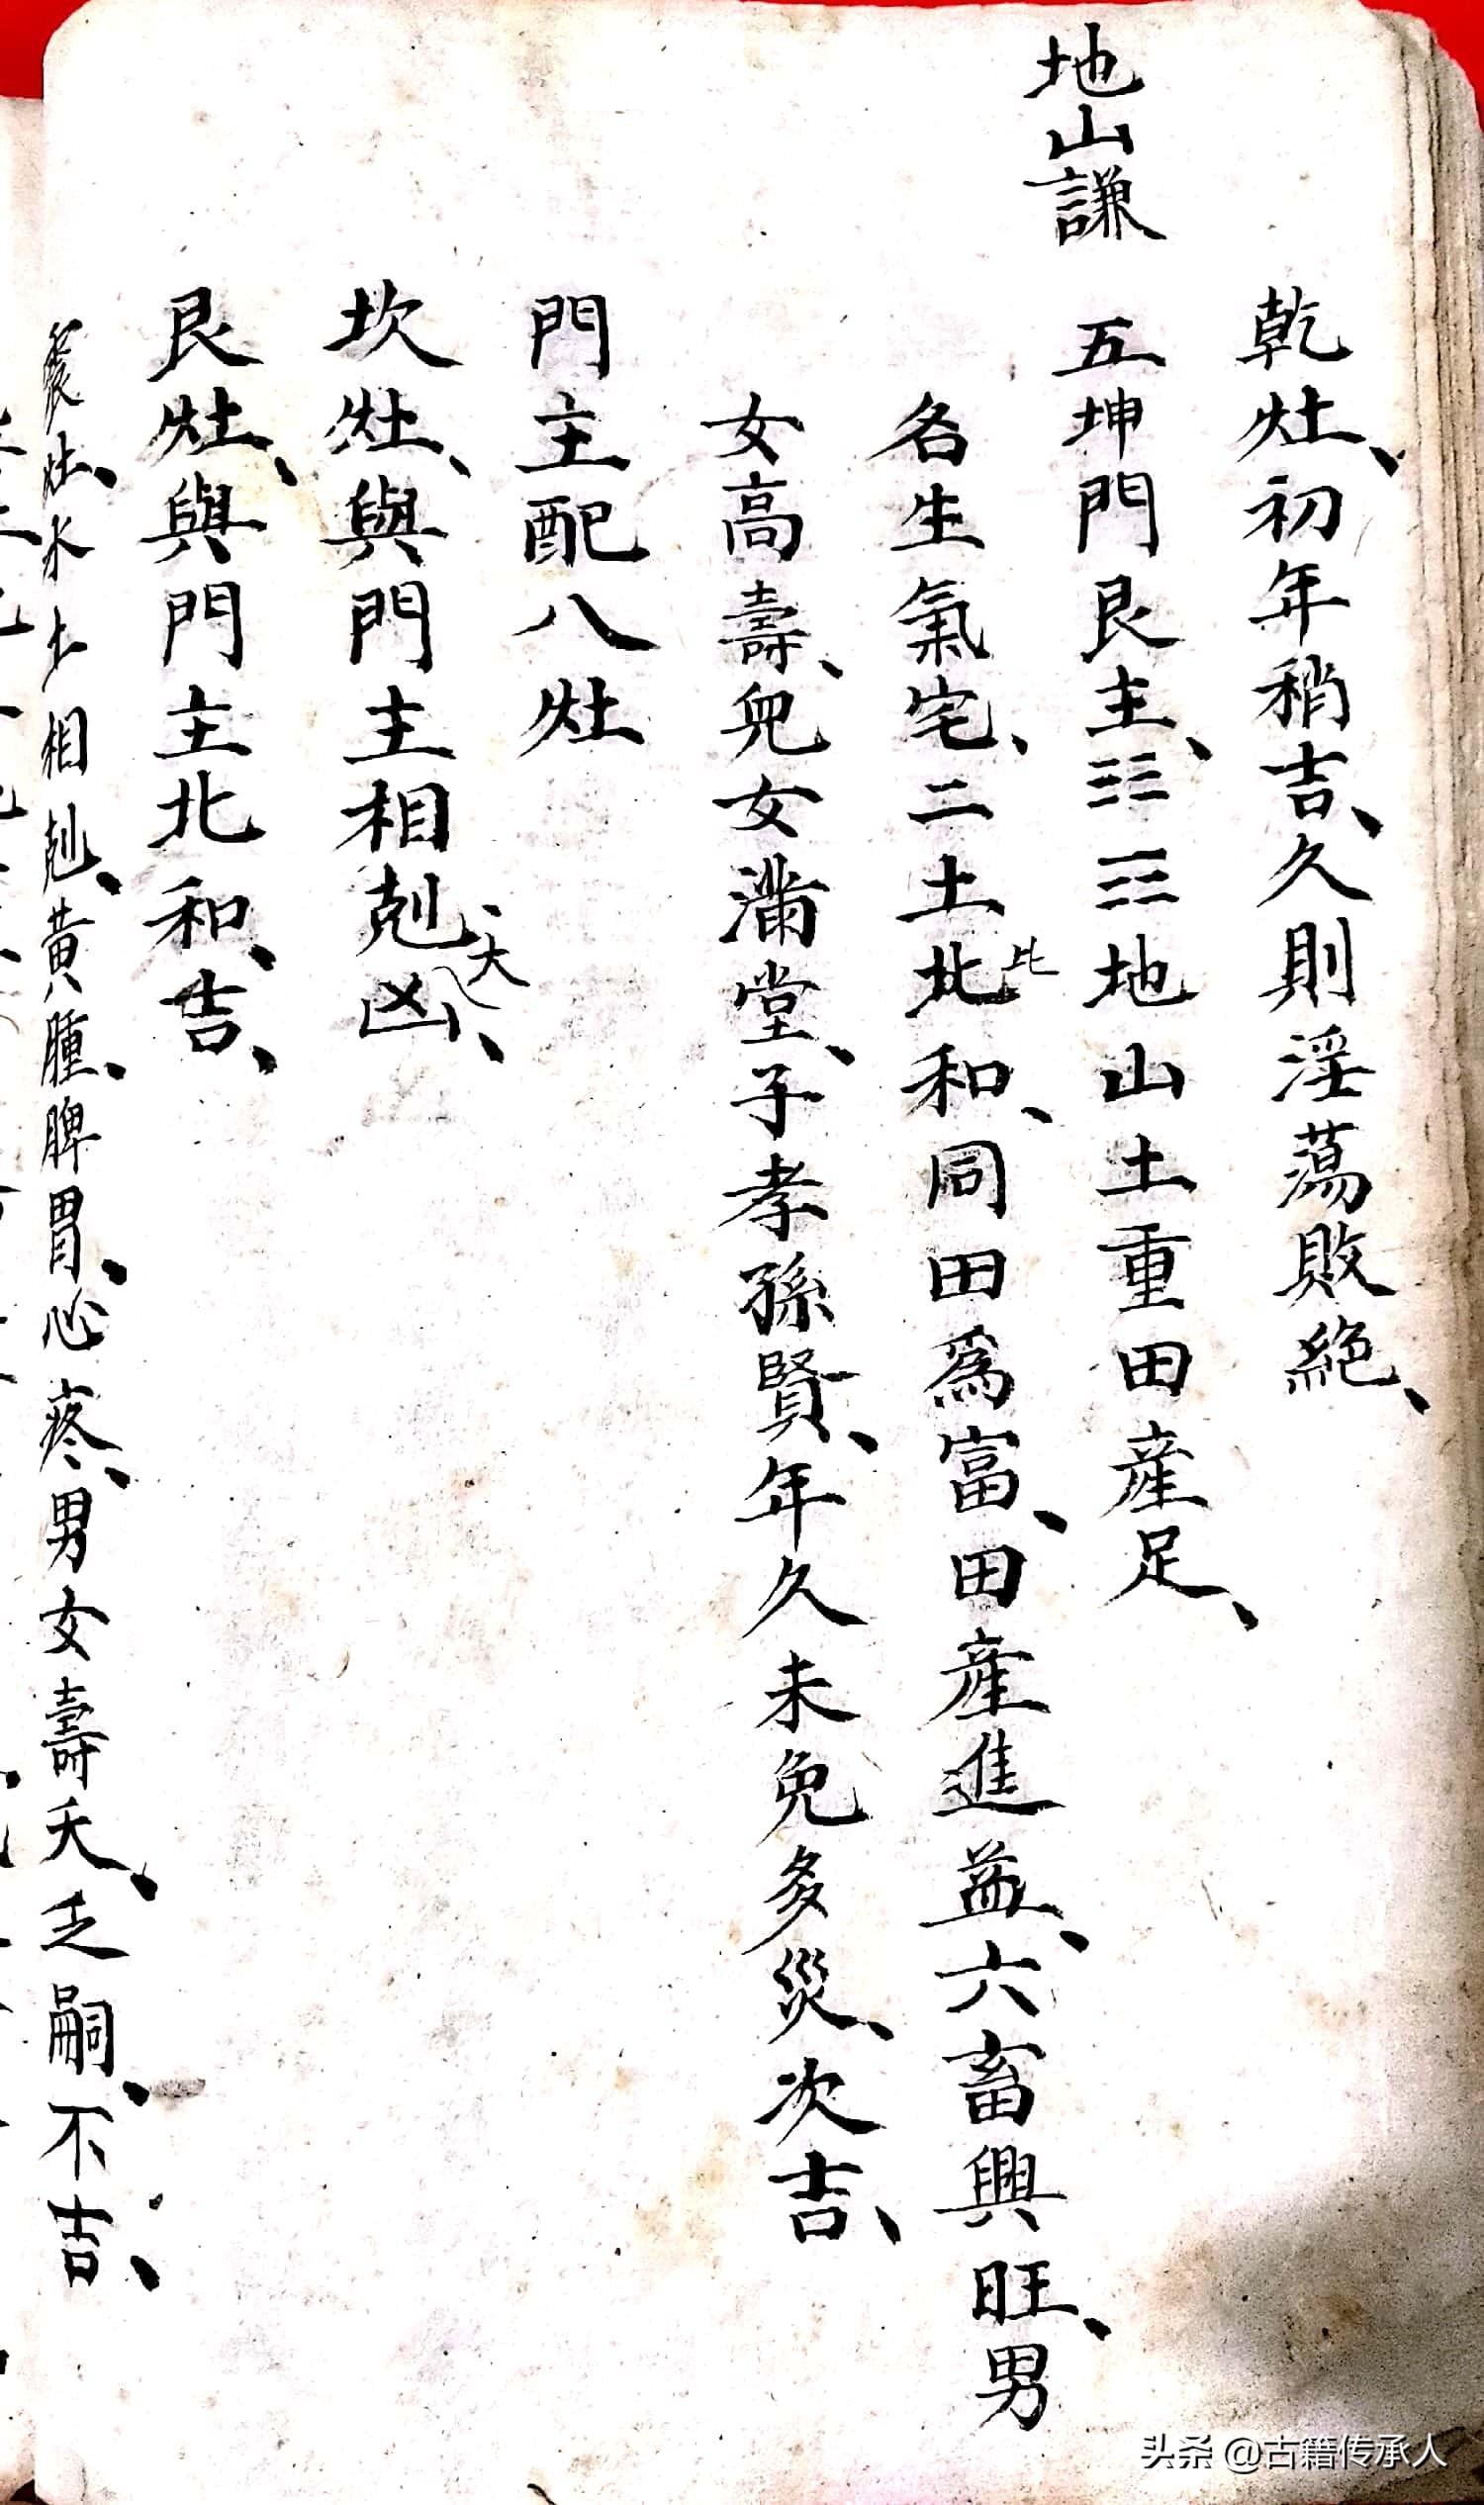 乾灶、初年稍吉、久則淫蕩敗絕、
地山謙
五坤門艮主、☷☶地山土重田產足、
名生氣宅、二土北比和、同田為富、田產進益、六畜興旺、男
女高壽、兒女滿堂、子孝孫賢、年久未免多災、次吉、
門主配八灶
坎灶、與門主相剋、大凶、
艮灶、與門主北和、吉、
震灶、木土相剋、黃腫、脾胃、心疼、男女壽夭、乏嗣、不吉、
头条 @古籍传承人